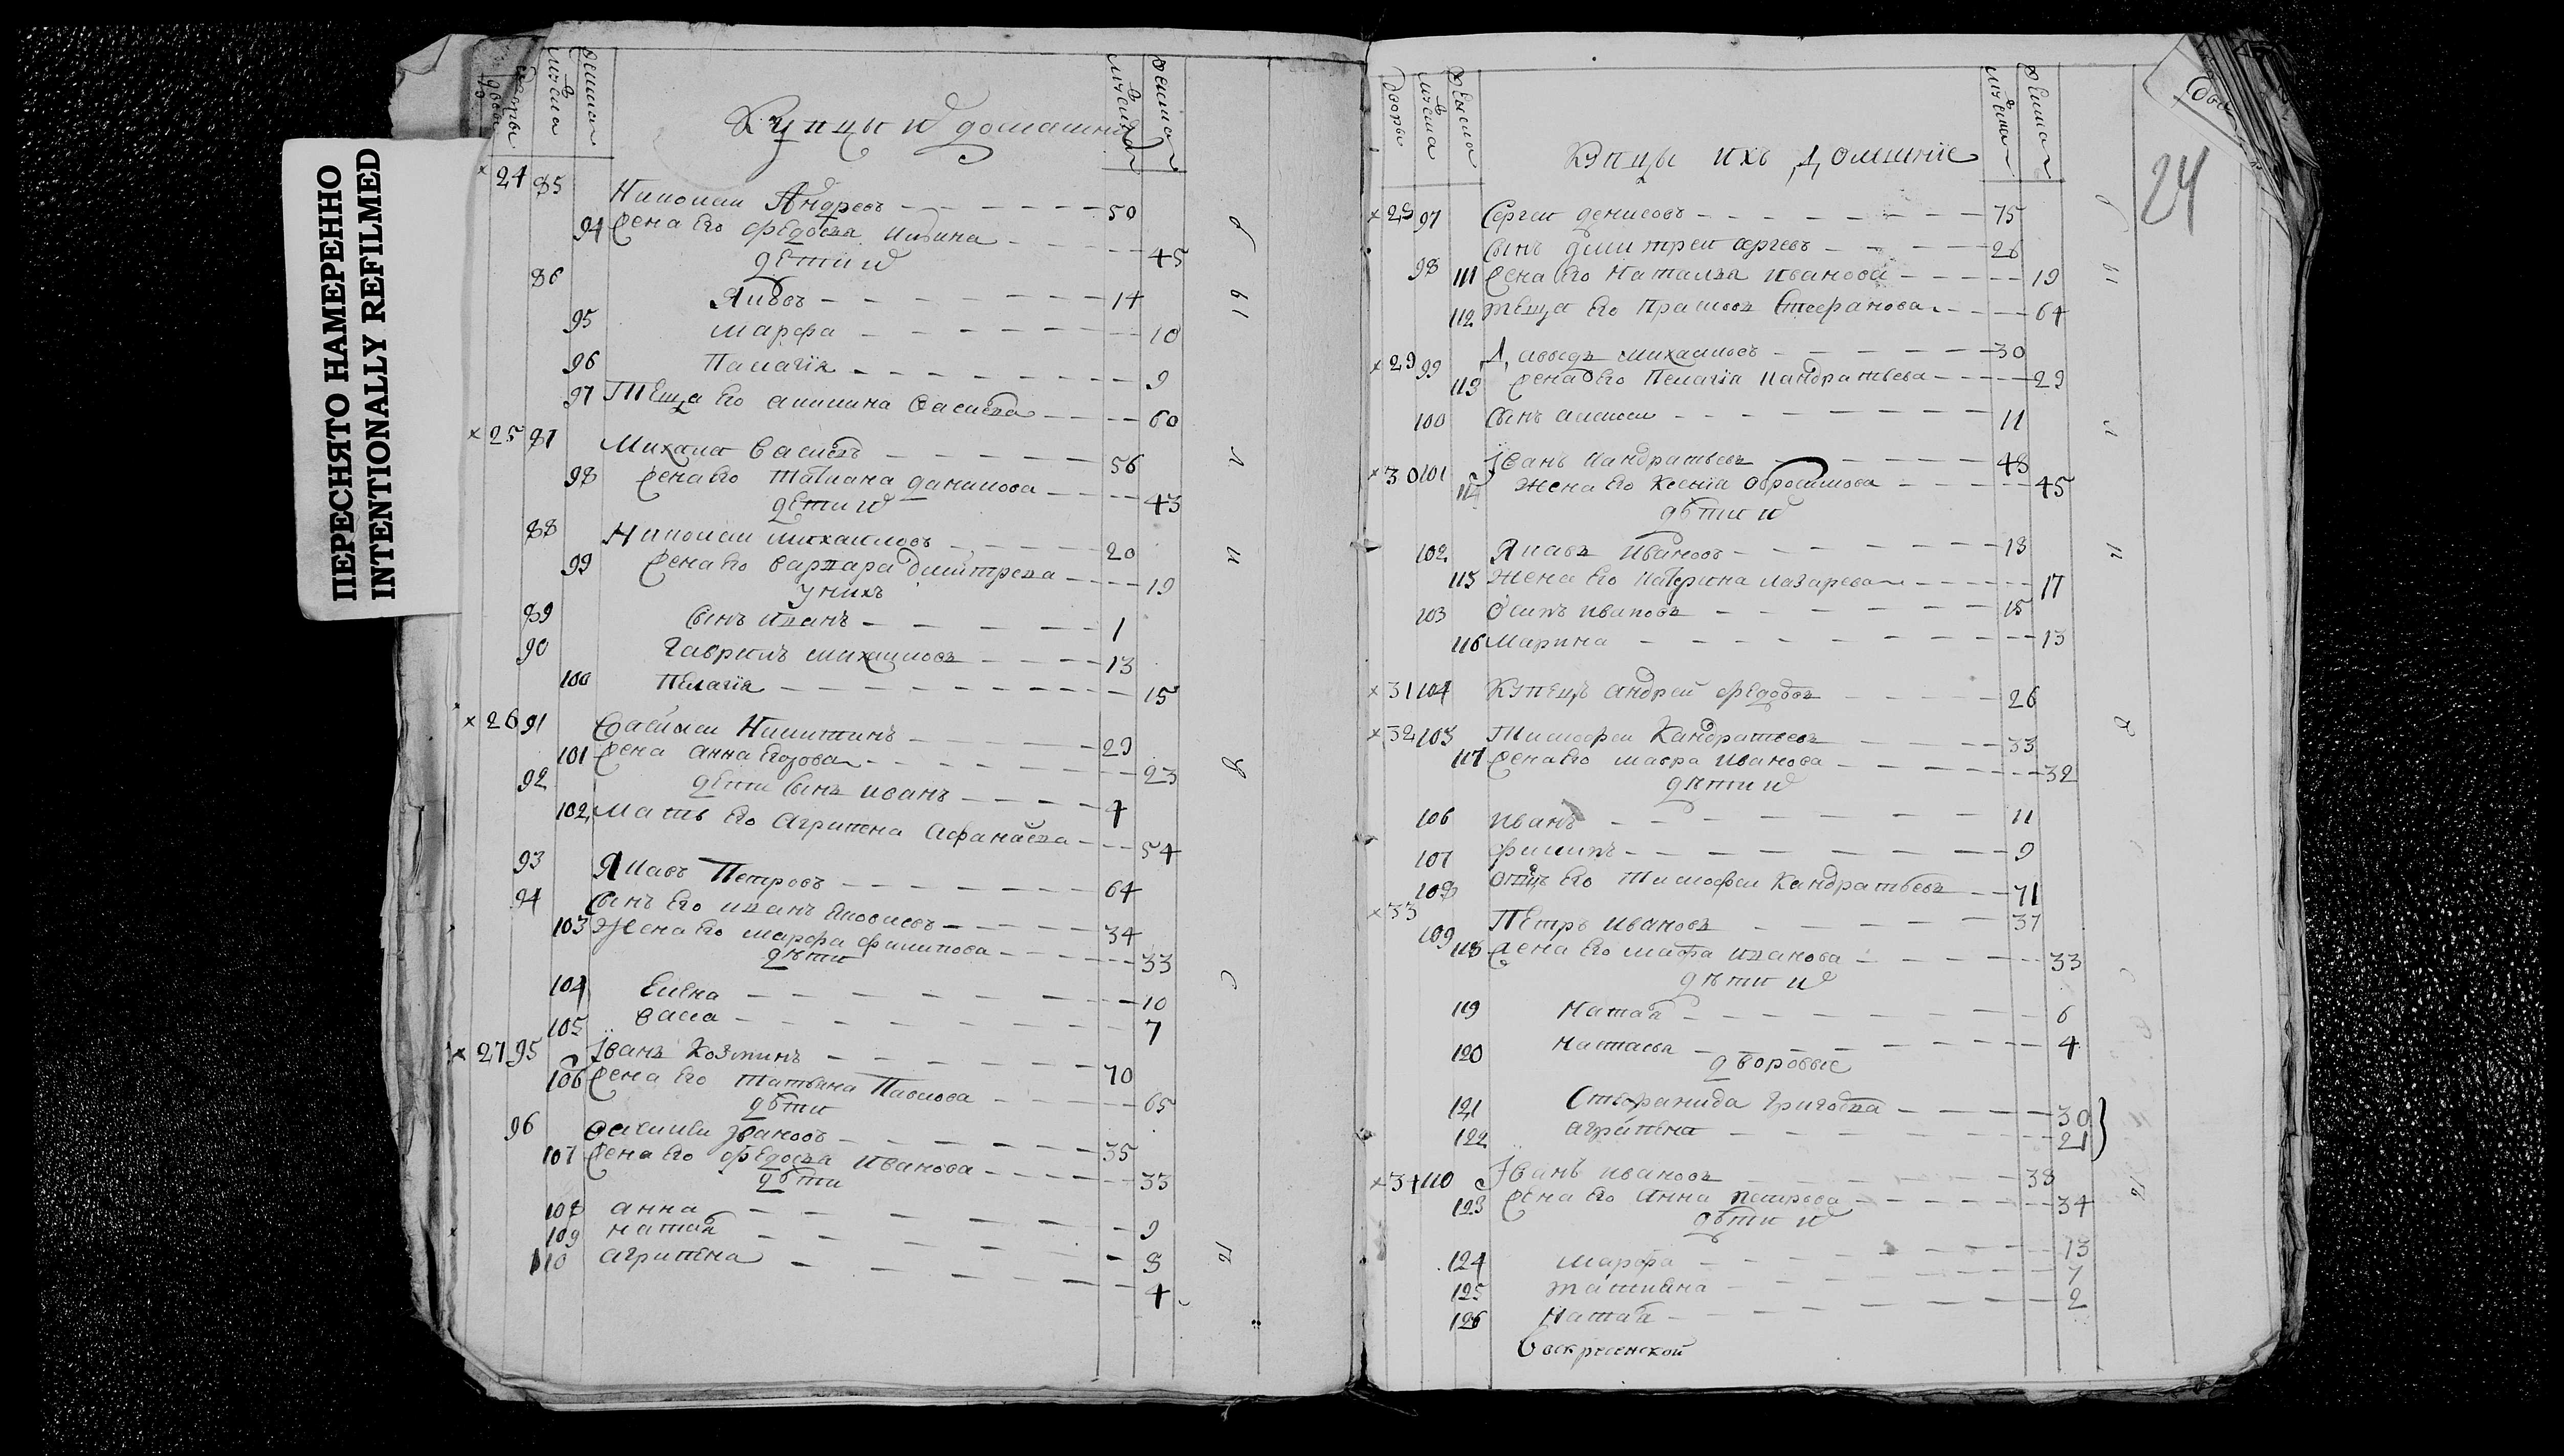 ПЕРЕСНЯТО НАМЕРЕННО
INTENTIONALLY REFILMED
Купцы и домашнии
× 24 85 Николаи Андреевъ 50
94 жена Его Федосья 45
дети их
86 Яковъ 14
95 марфа 10
96 Палагiя 9
97 Теща Его акилина васильева 60
× 25 87 Михаила васильевъ 56
98 жена Его татиана данилова 43
дети их
88 Николаи михаиловъ 20
99 жена Его варвара дмитрева 19
у нихъ
89 Сынъ иванъ 1
90 Гаврилъ михаиловъ 13
100 Пелагiя 15
× 26 91 василеи Никитинъ 29
101 жена анна Егорова 23
92 дети Сынъ иванъ 4
102 мать Его Агрипена Афанасева 54
93 Яковъ Петровъ 64
94 Сынъ Его иванъ Яковлевъ 34
103 Жена Его марфа филипова 33
дѣти
104 Елена 10
105 васса 7
× 27 95 Iванъ Козминъ 70
106 жена Его татьяна Павлова 65
дѣти
96 василеи Iвановъ 35
107 жена Его федосья Иванова 33
дѣти
108 анна 9
109 натал 8
110 агрипена 4
24
дворы
Купцы ихъ Домашнiе
× 28 97 Сергеи денисовъ 75
98 Сынъ дмитреи сергеевъ 26
111 жена Его Наталья иванова 19
112 теща Его Прасковя Стефанова 64
× 29 99 Давыдъ михаиловъ 30
113 жена Его Пелагiя Кандратьева 29
100 Сынъ алексеи 11
× 30 101 Iванъ Кандратьевъ 48
114 жена Его Ксенiя Обросимова 45
дѣти их
102 Яковъ Ивановъ 18
115 жена Его Катерина лазарева 17
103 Осипъ ивановъ 15
116 Марина 13
× 31 104 Купецъ андрей федоровъ 26
× 32 105 Тимофеи Кандратьевъ 33
117 жена Его мавра Иванова 32
дѣти их
106 иванъ 11
107 филипъ 9
108 отецъ Его Кандратьевъ 71
× 33 109 Петръ Ивановъ 37
118 жена Его марфа иванова 33
дѣти их
119 Натал 6
120 настасья 4
дворовые
121 Стефанида Григорева 30
122 агрипена 21
× 34 110 Iванъ ивановъ 38
123 жена Его Анна петрова 34
дѣти их
124 марфа 13
125 татиана 7
126 Натал 2
Воскресенской